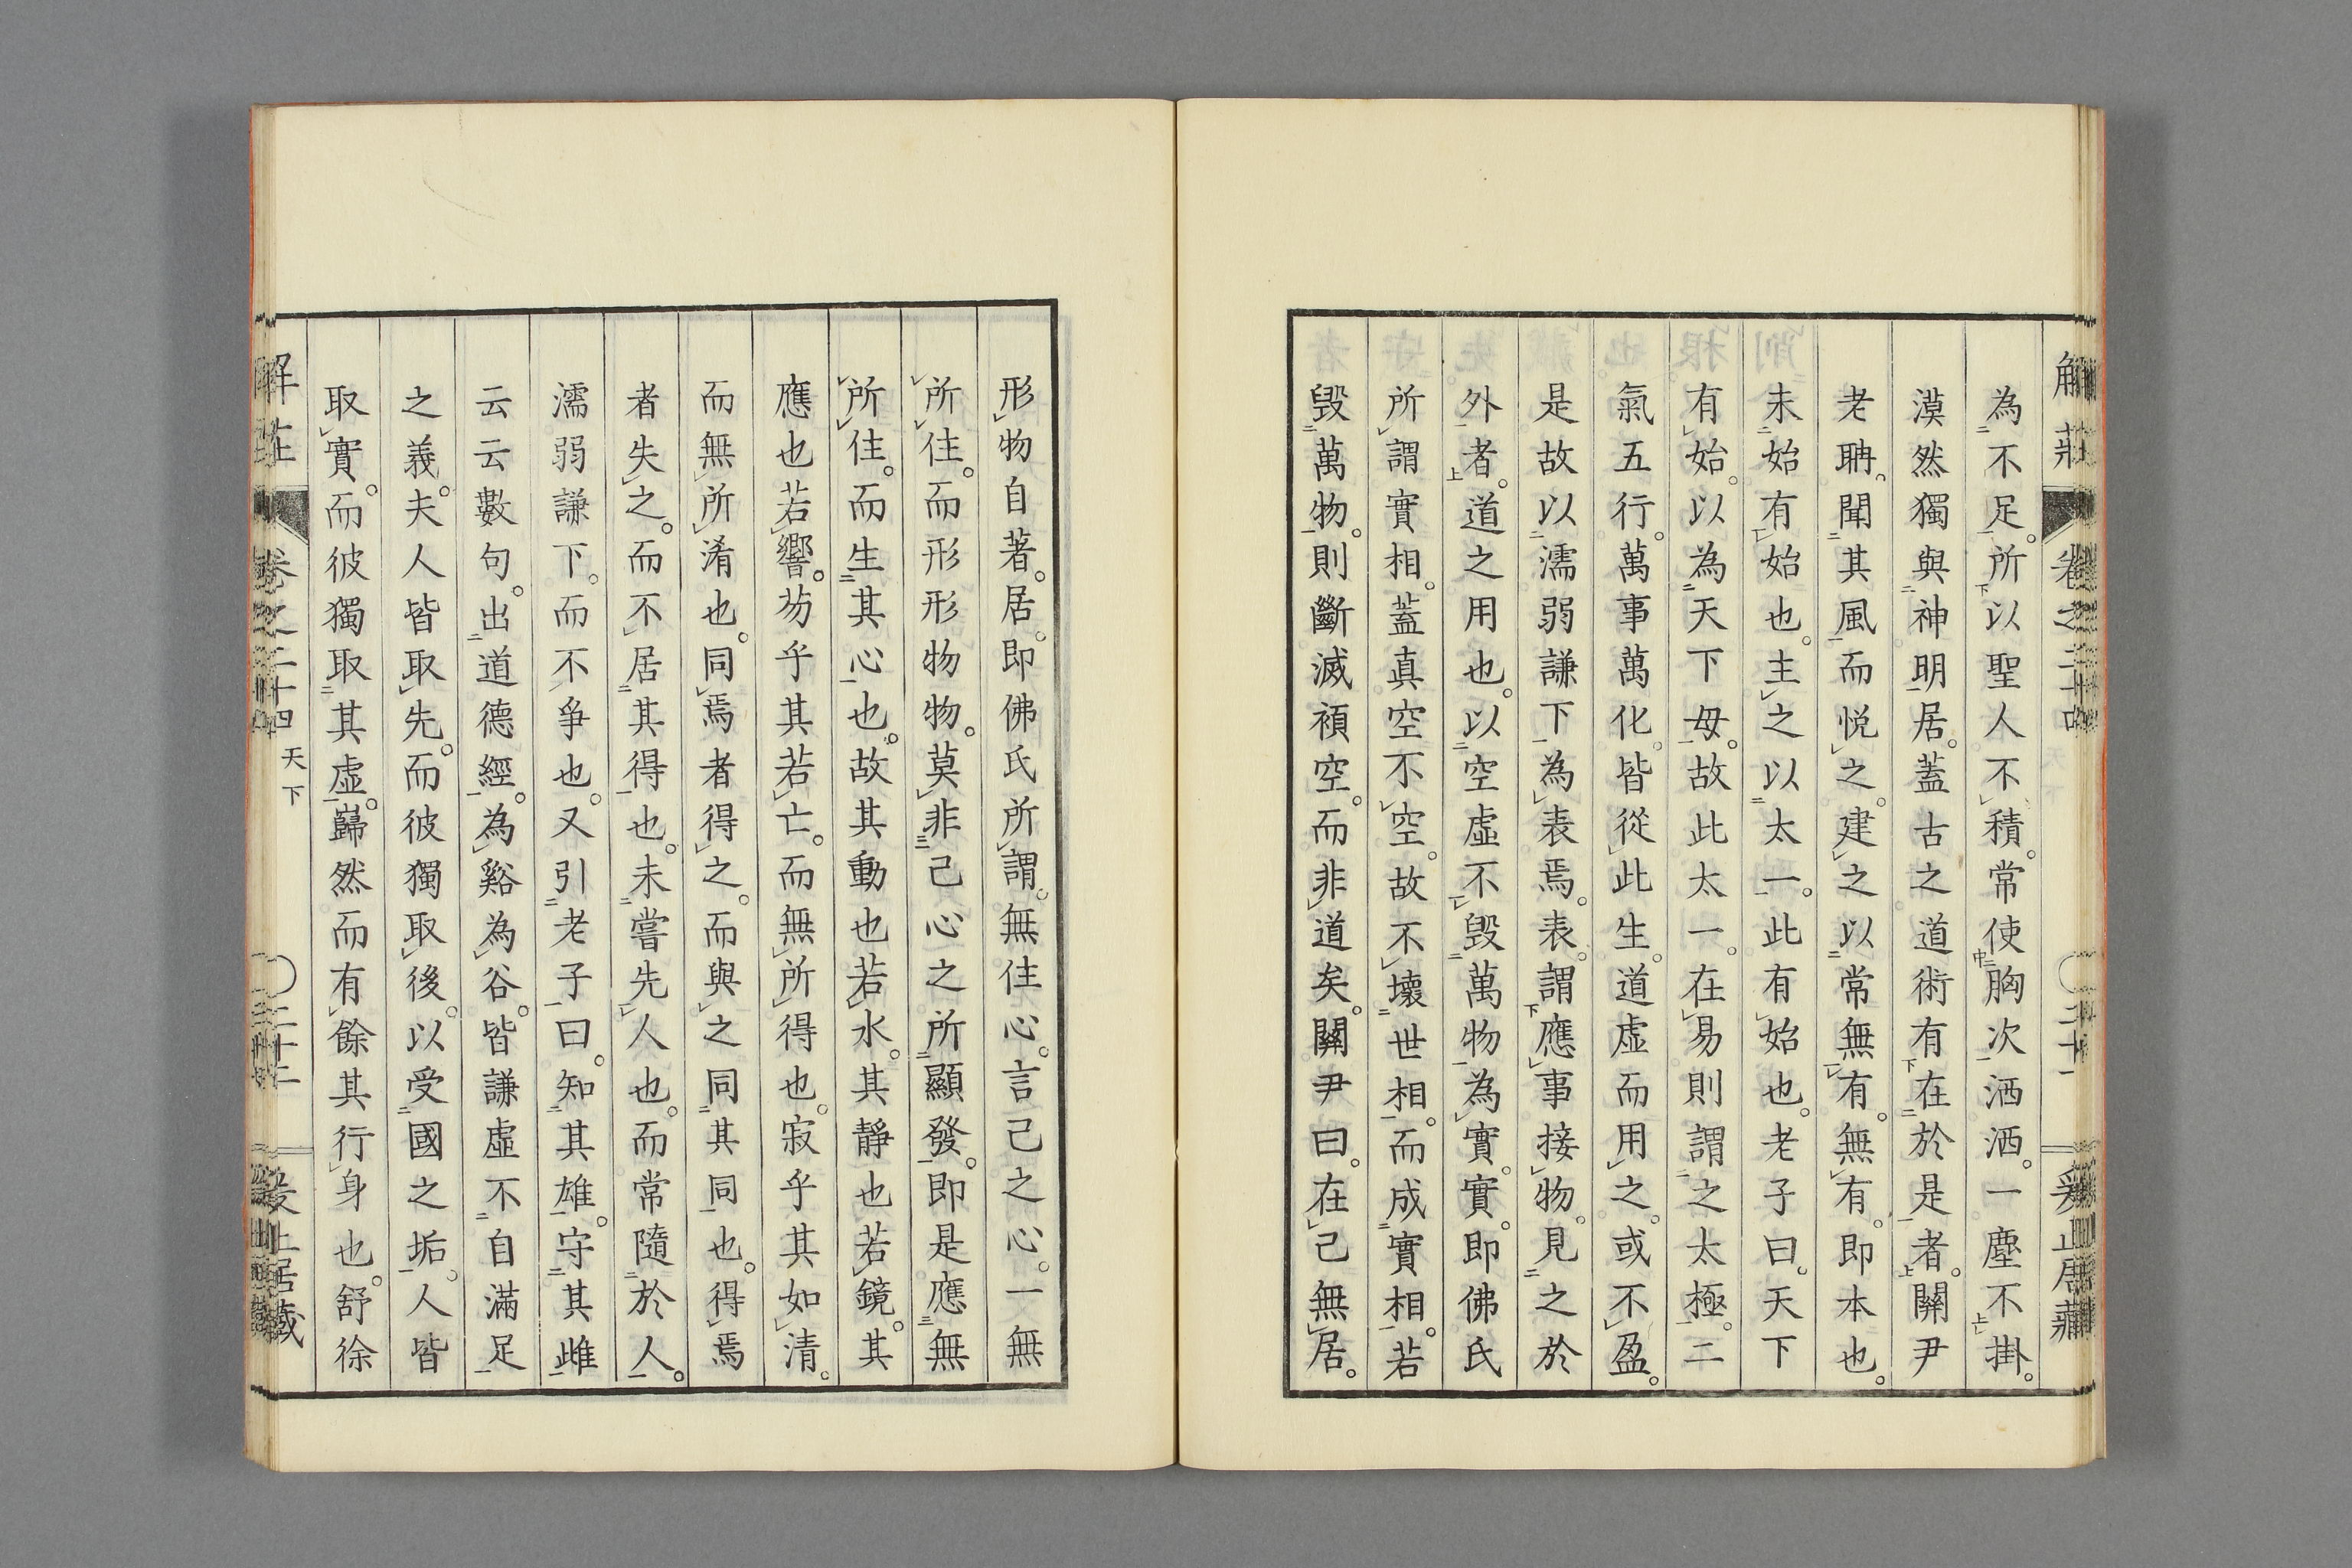 解莊 卷之二十四 二十一 爰止居藏
為不足。所以聖人不積。常使胸次洒洒。一塵不掛。
漠然獨與神明居。蓋古之道術有在於是者。關尹
老聃。聞其風而悅之。建之以常無有。無有。即本也。
未始有始也。主之以太一。此有始也。老子曰。天下
有始。以為天下母。故此太一。在易則謂之太極。二
氣五行。萬事萬化。皆從此生。道虛而用之。或不盈。
是故以濡弱謙下為表焉。表。謂應事接物。見之於
外者。道之用也。以空虛不毀萬物為實。實。即佛氏
所謂實相。蓋真空不空。故不壞世相。而成實相。若
毀萬物。則斷滅頑空。而非道矣。關尹曰。在己無居。
形物自著。居。即佛氏所謂。無住心。言己之心。一無
所住。而形形物物。莫非己心之所顯發。即是應無
所住。而生其心也。故其動也若水。其靜也若鏡。其
應也若響。芴乎其若亡。而無所得也。寂乎其如清。
而無所淆也。同焉者得之。而與之同其同也。得焉
者失之。而不居其得也。未嘗先人也。而常隨於人。
濡弱謙下。而不爭也。又引老子曰。知其雄。守其雌
云云數句。出道德經。為谿為谷。皆謙虛不自滿足
之義。夫人皆取先。而彼獨取後。以受國之垢。人皆
取實。而彼獨取其虛。巋然而有餘其行身也。舒徐
解莊 卷之二十四 天下 二十二 爰止居藏